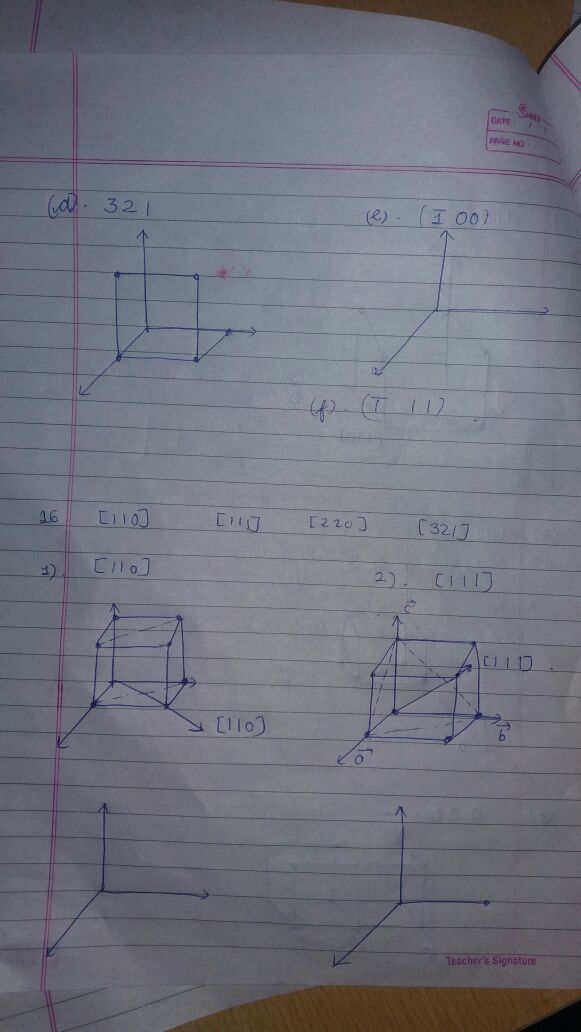 SHREE
DATE:
PAGE NO.:
(d). 321
(e). (1̅ 00)
(f). (1̅ 11)
16 [110] [111] [220] [321]
1). [110]
2). [111]
c⃗
[111].
[110]
a⃗
b⃗
Teacher's Signature